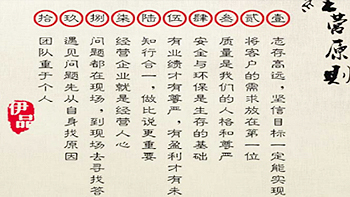 营原則
壹
志存高远，坚信目标一定能实现
贰
将客户的需求放在第一位
叁
质量是我们的人格和尊严
肆
安全与环保是生存的基础
伍
有业绩才有尊严，有盈利才有未
陆
知行合一，做比说更重要
柒
经营企业就是经营人心
捌
问题都在现场，到现场去寻找答
玖
遇见问题先从自身找原因
拾
团队重于个人
伊品